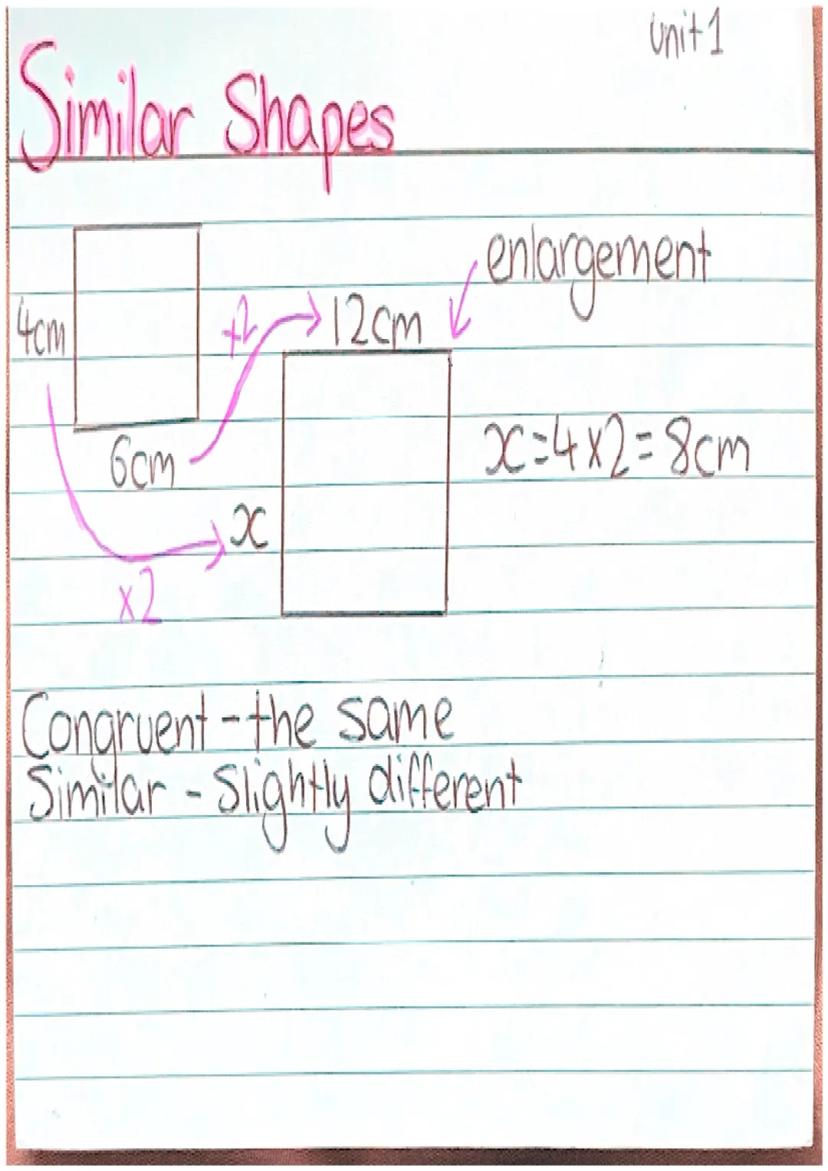 Unit 1
Similar Shapes
enlargement
4cm
×2
12cm
6cm
x=4×2=8cm
x
×2
Congruent - the same
Similar - Slightly different